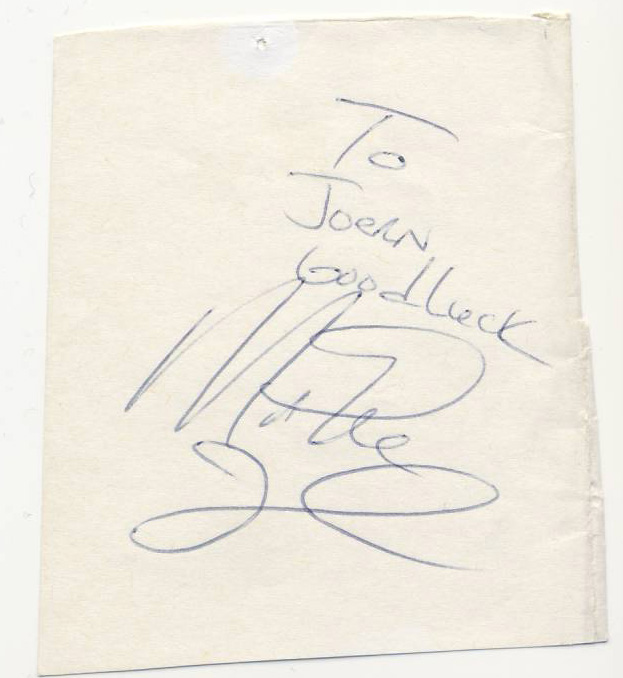 To
Joern
Good Luck